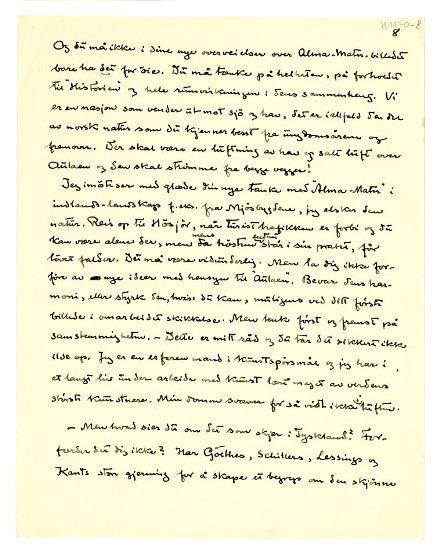 KM70-8
8
Og du må ikke i dine nye overveielser over Alma-Mater-billedet
bare ha det for öie. Du må tenke på helheten, på forholdet
til "Historien" og hele rumvirkningen i dens sammenheng. Vi
er en nasjon som vender ut mot sjö og hav, det er iallfald den del
av norsk natur som du kjenner best fra ungdomsårene og
fremover. Der skal være en luftning av hav og salt luft over
Aulaen og den skal strömme fra begge vegger!
Jeg imöteser med glæde din nye tanke med "Alma-Mater" i
indlands-landskap f.eks. fra Mjösbygdene, jeg elsker den
natur. Reis op til Hösjör, når turisttrafikken er forbi og du
kan være alene der, men mens hösten endnu står i sin prakt, för
lövet falder. Du må være vidunderlig. Men la dig ikke for-
före av nye ideer med hensyn til "Aulaen". Bevar dens har-
moni, eller styrk den, hvis du kan, muligens ved ditt förste
billede i omarbeidet skikkelse. Men tenk först og fremst på
samstemmigheten. – Dette er mitt råd og du tar det sikkert ikke
ilde op. Jeg er en erfaren mand i kunstspörsmål og jeg har i
et langt liv under arbeide med kunst lært meget av verdens
störste kunstnere. Min domm svæver for så vidt ikke i luften.
– Men hvad sier du om det som skjer i Tyskland? For-
færder det dig ikke? Har Goethes, Schillers, Lessings og
Kants stor gjerning for å skape et begrep om den skjönne